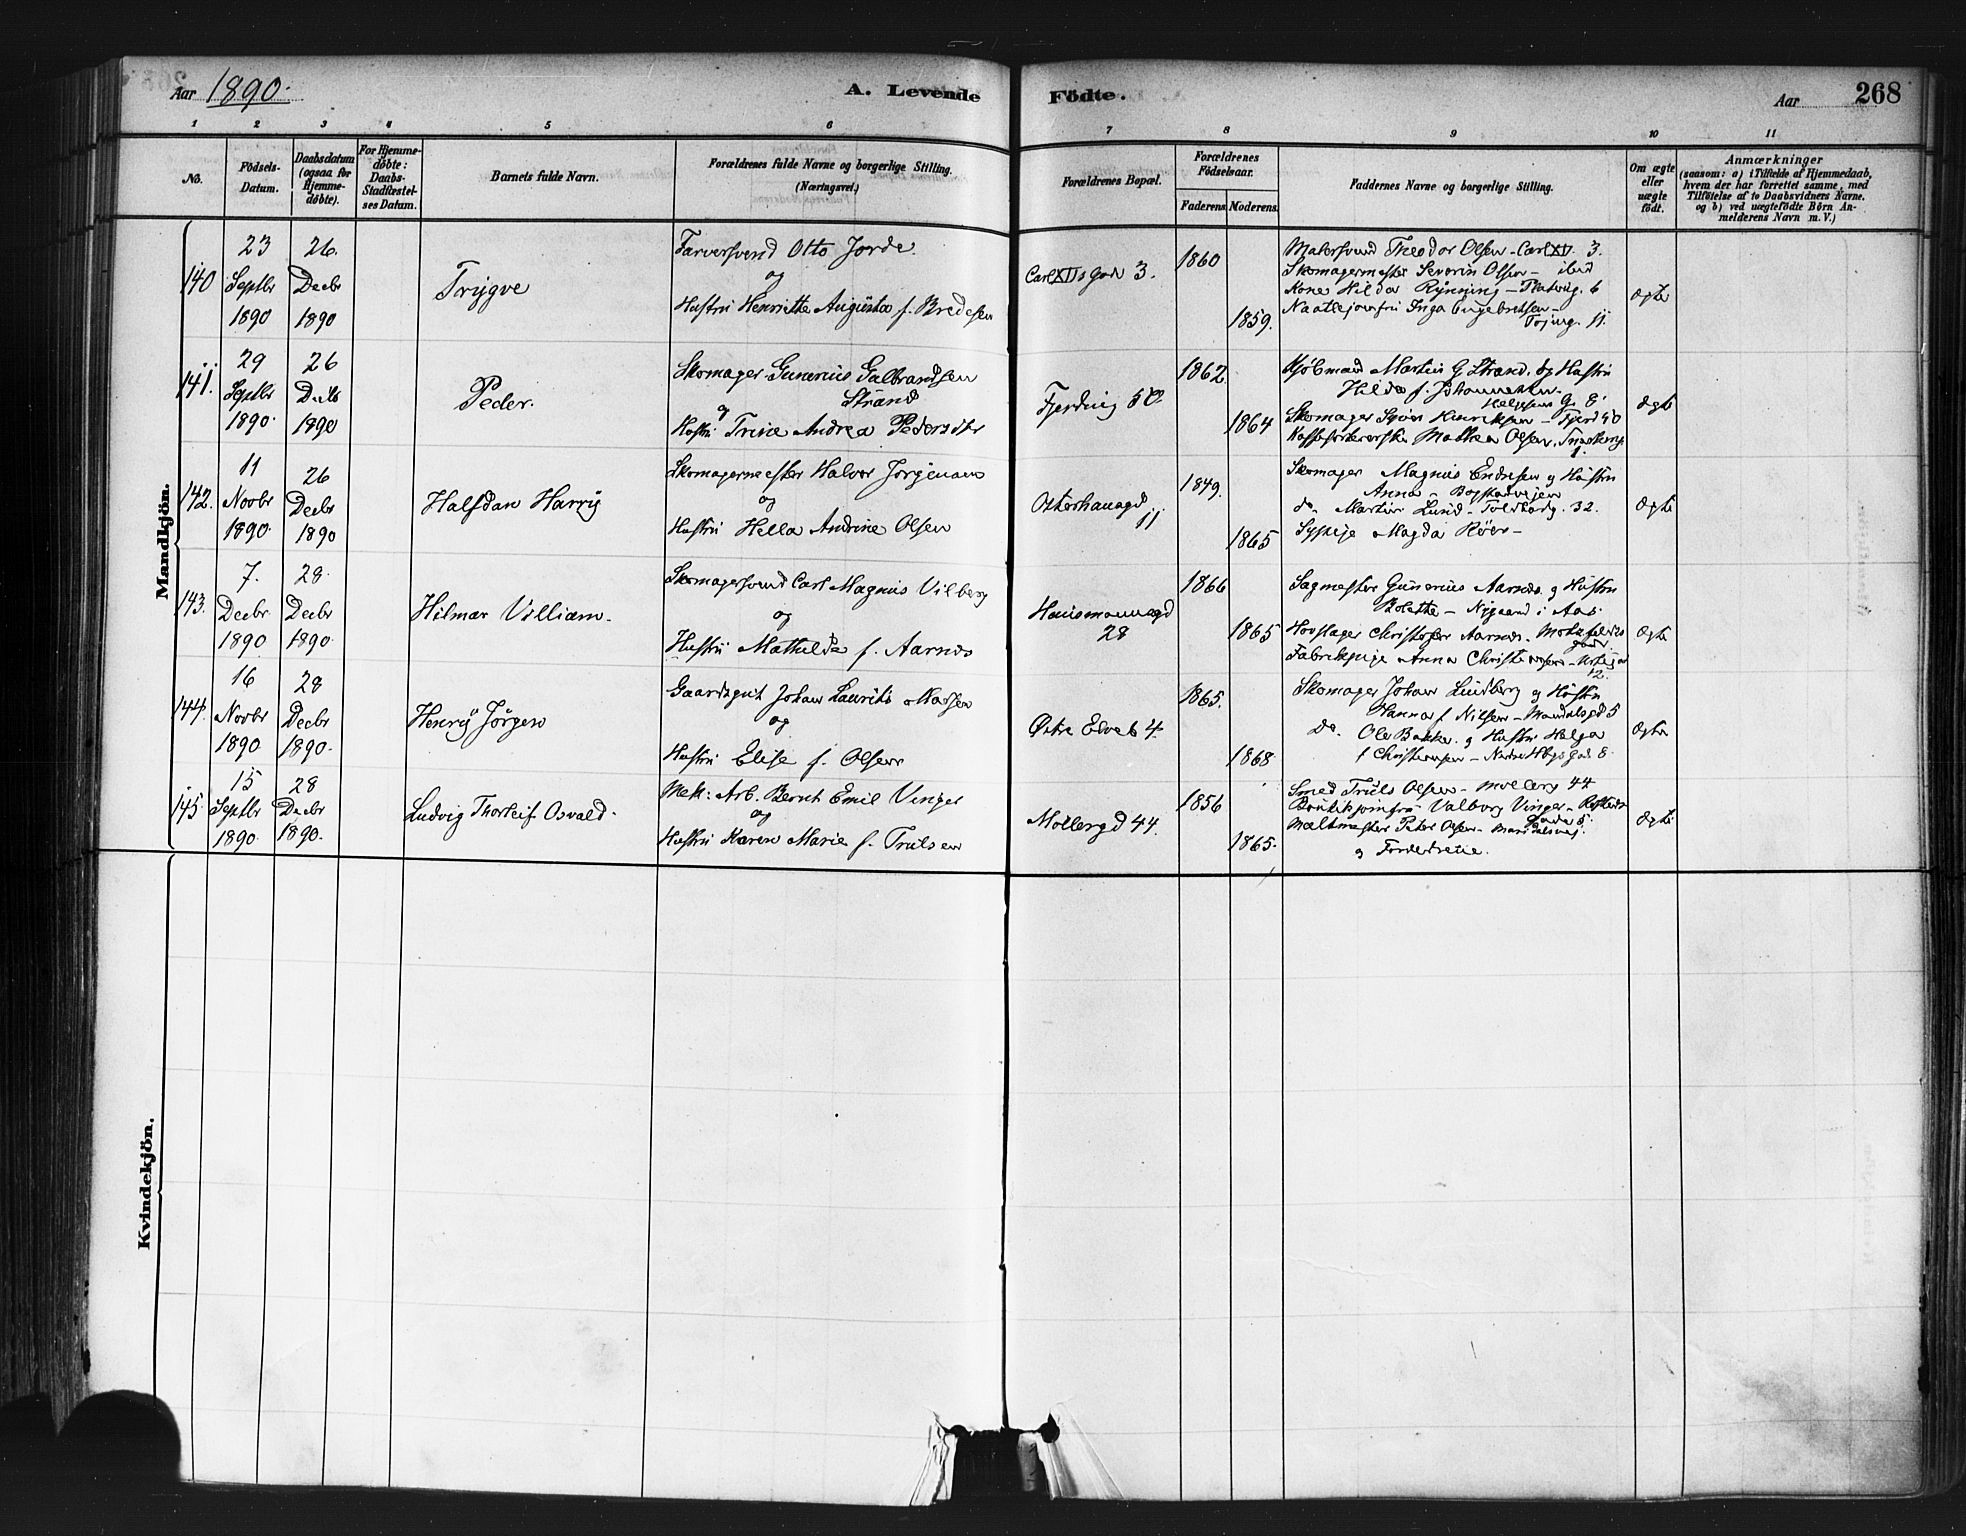 Aar 1890.
A. Levende Födte.
Aar
268
1 2 3 4 5 6 7 8 9 10 11
No.
Födsels-Datum.
Daabsdatum (ogsaa for Hjemme-döbte).
For Hjemme-döbte: Daabs-Stadfæstel-ses Datum.
Barnets fulde Navn.
Forældrenes fulde Navne og borgerlige Stilling. (Næringsvei.)
Forældrenes Bopæl.
Forældrenes Födselsaar.
Faderens. Moderens.
Faddernes Navne og borgerlige Stilling.
Om ægte eller uægte födt.
Anmærkninger
(saasom: a) i Tilfælde af Hjemmedaab,
hvem der har forrettet samme, med
Tilföielse af to Daabsvidners Navne,
og b) ved uægtefödte Börn An-
melderens Navn m. V.)
Mandkjön.
140
23 Septbr 1890
26. Decbr 1890
Trygve
Farversvend Otto Jorde
og
Hustru Henriette Augusta f. Bredesen
Carl XIIs gad 3.
1860
1859.
Malersvend Theodor Olsen - Carl XII 3.
Skomagermester Severin Olsen - ibid
Kone Hilda Rynning - 6
Inga Engebretsen -
11.
Ægte
141.
29 Septbr 1890.
26 Decbr 1890
Peder.
Skomager Gunerius Gulbrandsen
Strand
og
Hustru Trine Andrea Pedersdtr
Fjerding 50.
1862.
1864
Martin G Strand. og Hustru
Hilda f. Johannessen
G. 8
Skomager Henriksen - Fjerd 50
Mathea Olsen.
Ægte
142.
11 Novbr 1890.
26 Decbr 1890
Halfdan Harry
Skomagermester Halvor Jørgensen
og
Hustru Hella Andrine Olsen
Osterhausgd 11
1849.
1865
Skomager Magnus Endresen og Hustru
Anna -
do. Martin Lund - Toldbodg. 32.
Sypige Magda Röer -
Ægte
143.
7. Decbr 1890
28. Decbr 1890.
Hilmar Villiam.
Skomagersvend Carl Magnus Vilberg
og
Hustru Mathilde f. Aarnæs
Hausmannsgd 28
1866
1865
Sagmester Gunerius Aarnæs og Hustru
Bolette - Nygaard i Aas.
Hovslager Christofer Aarnæs - Motzfeldts
gade.
Fabrikpige Anna Christensen -
12.
Ægte
144.
16 Novbr 1890
28 Decbr 1890.
Henry Jörgen
Gaardsgut Johan Laurits Larsen
og
Hustru Elise f. Olsen
Østre Elveb 4.
1865.
1868
Skomager Johan Lindberg og Hustru
Hanna f. Nilsen - Mandalsgd 5
do. Ole Bakken og Hustru Helga
f Christensen - 8.
Ægte
145.
15 Septbr 1890.
28 Decbr 1890.
Ludvig Thorleif Osvald.
Mek: Arb. Bernt Emil Vinger
og
Hustru Karen Marie f. Trulsen
Möllergd 44.
1856
1865.
Smed Truls Olsen - Möllerg 44
Valborg Vinger -
Maltmester Peter Olsen - Mandalsvej.
og Forældrene.
Ægte
Kvindekjön.